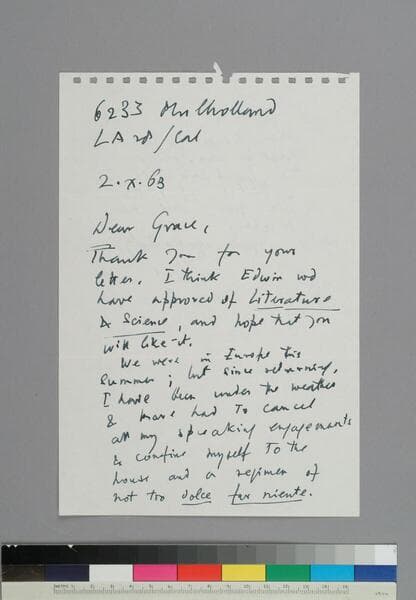 6233 Mulholland
LA 28/Cal
2.X.63
Dear Grace,
Thank you for your
letter. I think Edwin wd
have approved of Literature
& Science, and hope that you
will like it.
We were in Europe this
Summer; but since returning,
I have been under the weather
& have had to cancel
all my speaking engagements
& confine myself to the
house and a regimen of
not too dolce far niente.